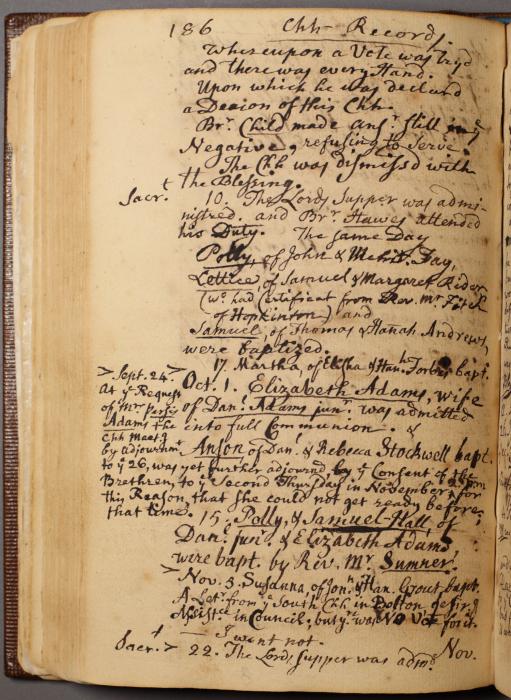 186 Chh Records.
Whereupon a Vote was try'd
and there was every Hand.
Upon which he was declard
a Deacon of this Chh.
Br. Child made ansr still in ye
Negative, refusing to serve.
The Chh was dismissd with
the Blessing.
Sacrt. 10. The Lords Supper was admi-
nistred. and Br. Hawes attended
his Duty. The same Day
Polly, of John & Mehit. Fay,
Lettice of Samuel & Margaret Rider
(wo. had Certificat from Rev. Mr. Fitch
of Hopkinton) and
Samuel, of Thomas & Hanah Andrews,
were baptized.
17. Martha, of Elisha & Hanh Forbes, bapt.
Oct. 1. Elizabeth Adams, Wife
of Danl. Adams junr. was admitted
into full Communion. &
Anson of Danl. & Rebecca Stockwell bapt.
> Sept. 24. >
At ye Request
of Mr.
Adams the
Chh Meetg
by adjournmt
to ye 26, was yet further adjournd by ye Consent of the
Brethren, to ye Second Thursday in November, for
this Reason, that she could not get ready before
that time.
15. Polly, & Samuel-Hall of
Danl. junr. & Elizabeth Adams
were bapt. by Rev. Mr. Sumner.
> Nov. 5 Susanna, of Jonn & Han. Grout bapt.
A Letr. from ye South Chh in Bolton desirg
Assistce in Council; but yre was No Vote for it.
— I went not.
Nov.
Sacrt. > 22. The Lords Supper was admd.